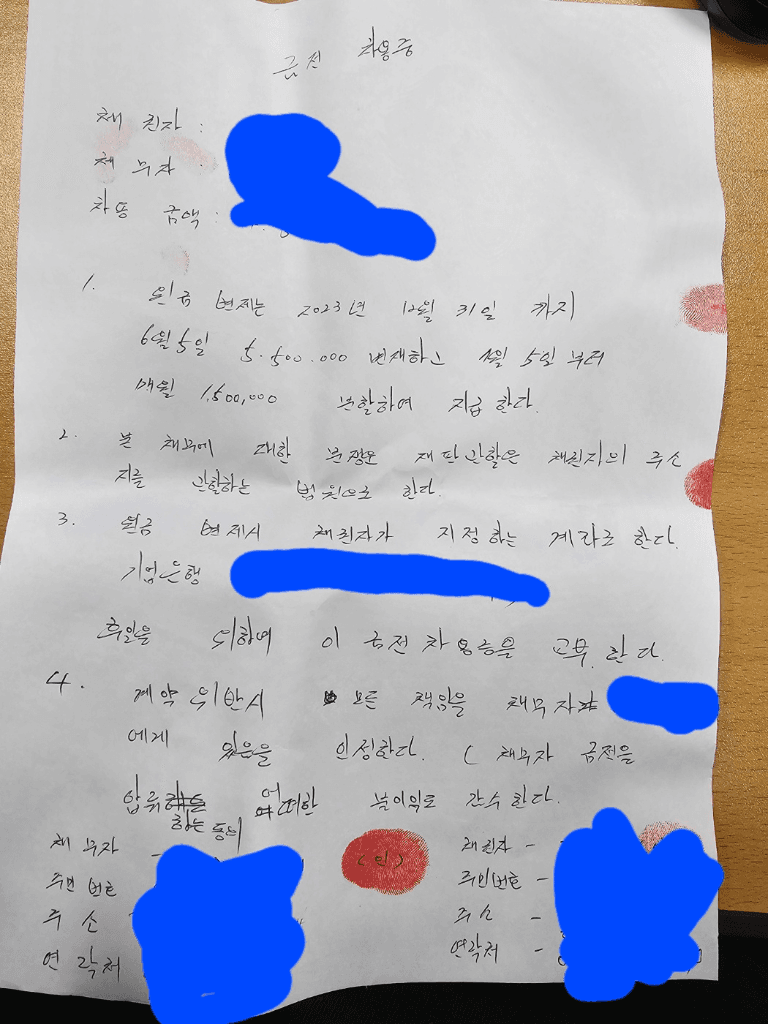 금전 차용증
채권자 :
채무자 :
차용 금액 :
1. 원금 변제는 2023년 12월 31일 까지
6월5일 5.500.000 변재하고 월 5일 부터
매월 1,500,000 분할하여 지급한다.
2. 본 채무에 대한 분쟁은 재판관할은 채권자의 주소
지를 관할하는 법원으로 한다.
3. 원금 변제시 채권자가 지정하는 계좌로 한다.
기업은행
후일을 위하여 이 금전차용증을 교부한다.
4. 계약 위반시 모든 책임을 채무자
에게 있음을 인정한다. ( 채무자 금전을
압류 어떠한 불이익도 감수한다.
하는 등의
채무자 -
주민번호
주소
연락처
(인)
채권자 -
주민번호 -
주소 -
연락처 -